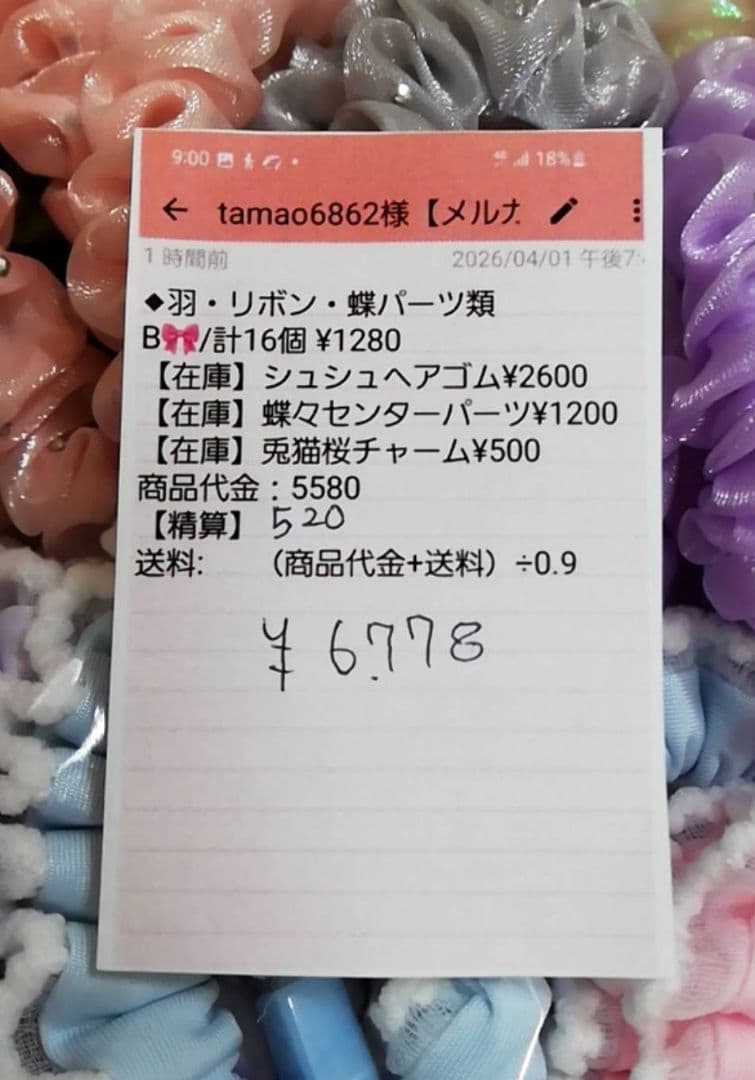 9:00 18%
← tamao6862様【メルカ
1 時間前 2026/04/01 午後7:
◆羽・リボン・蝶パーツ類
B🎀/計16個 ¥1280
【在庫】シュシュヘアゴム¥2600
【在庫】蝶々センターパーツ¥1200
【在庫】兎猫桜チャーム¥500
商品代金：5580
【精算】 520
送料: （商品代金+送料）÷0.9
¥6,778